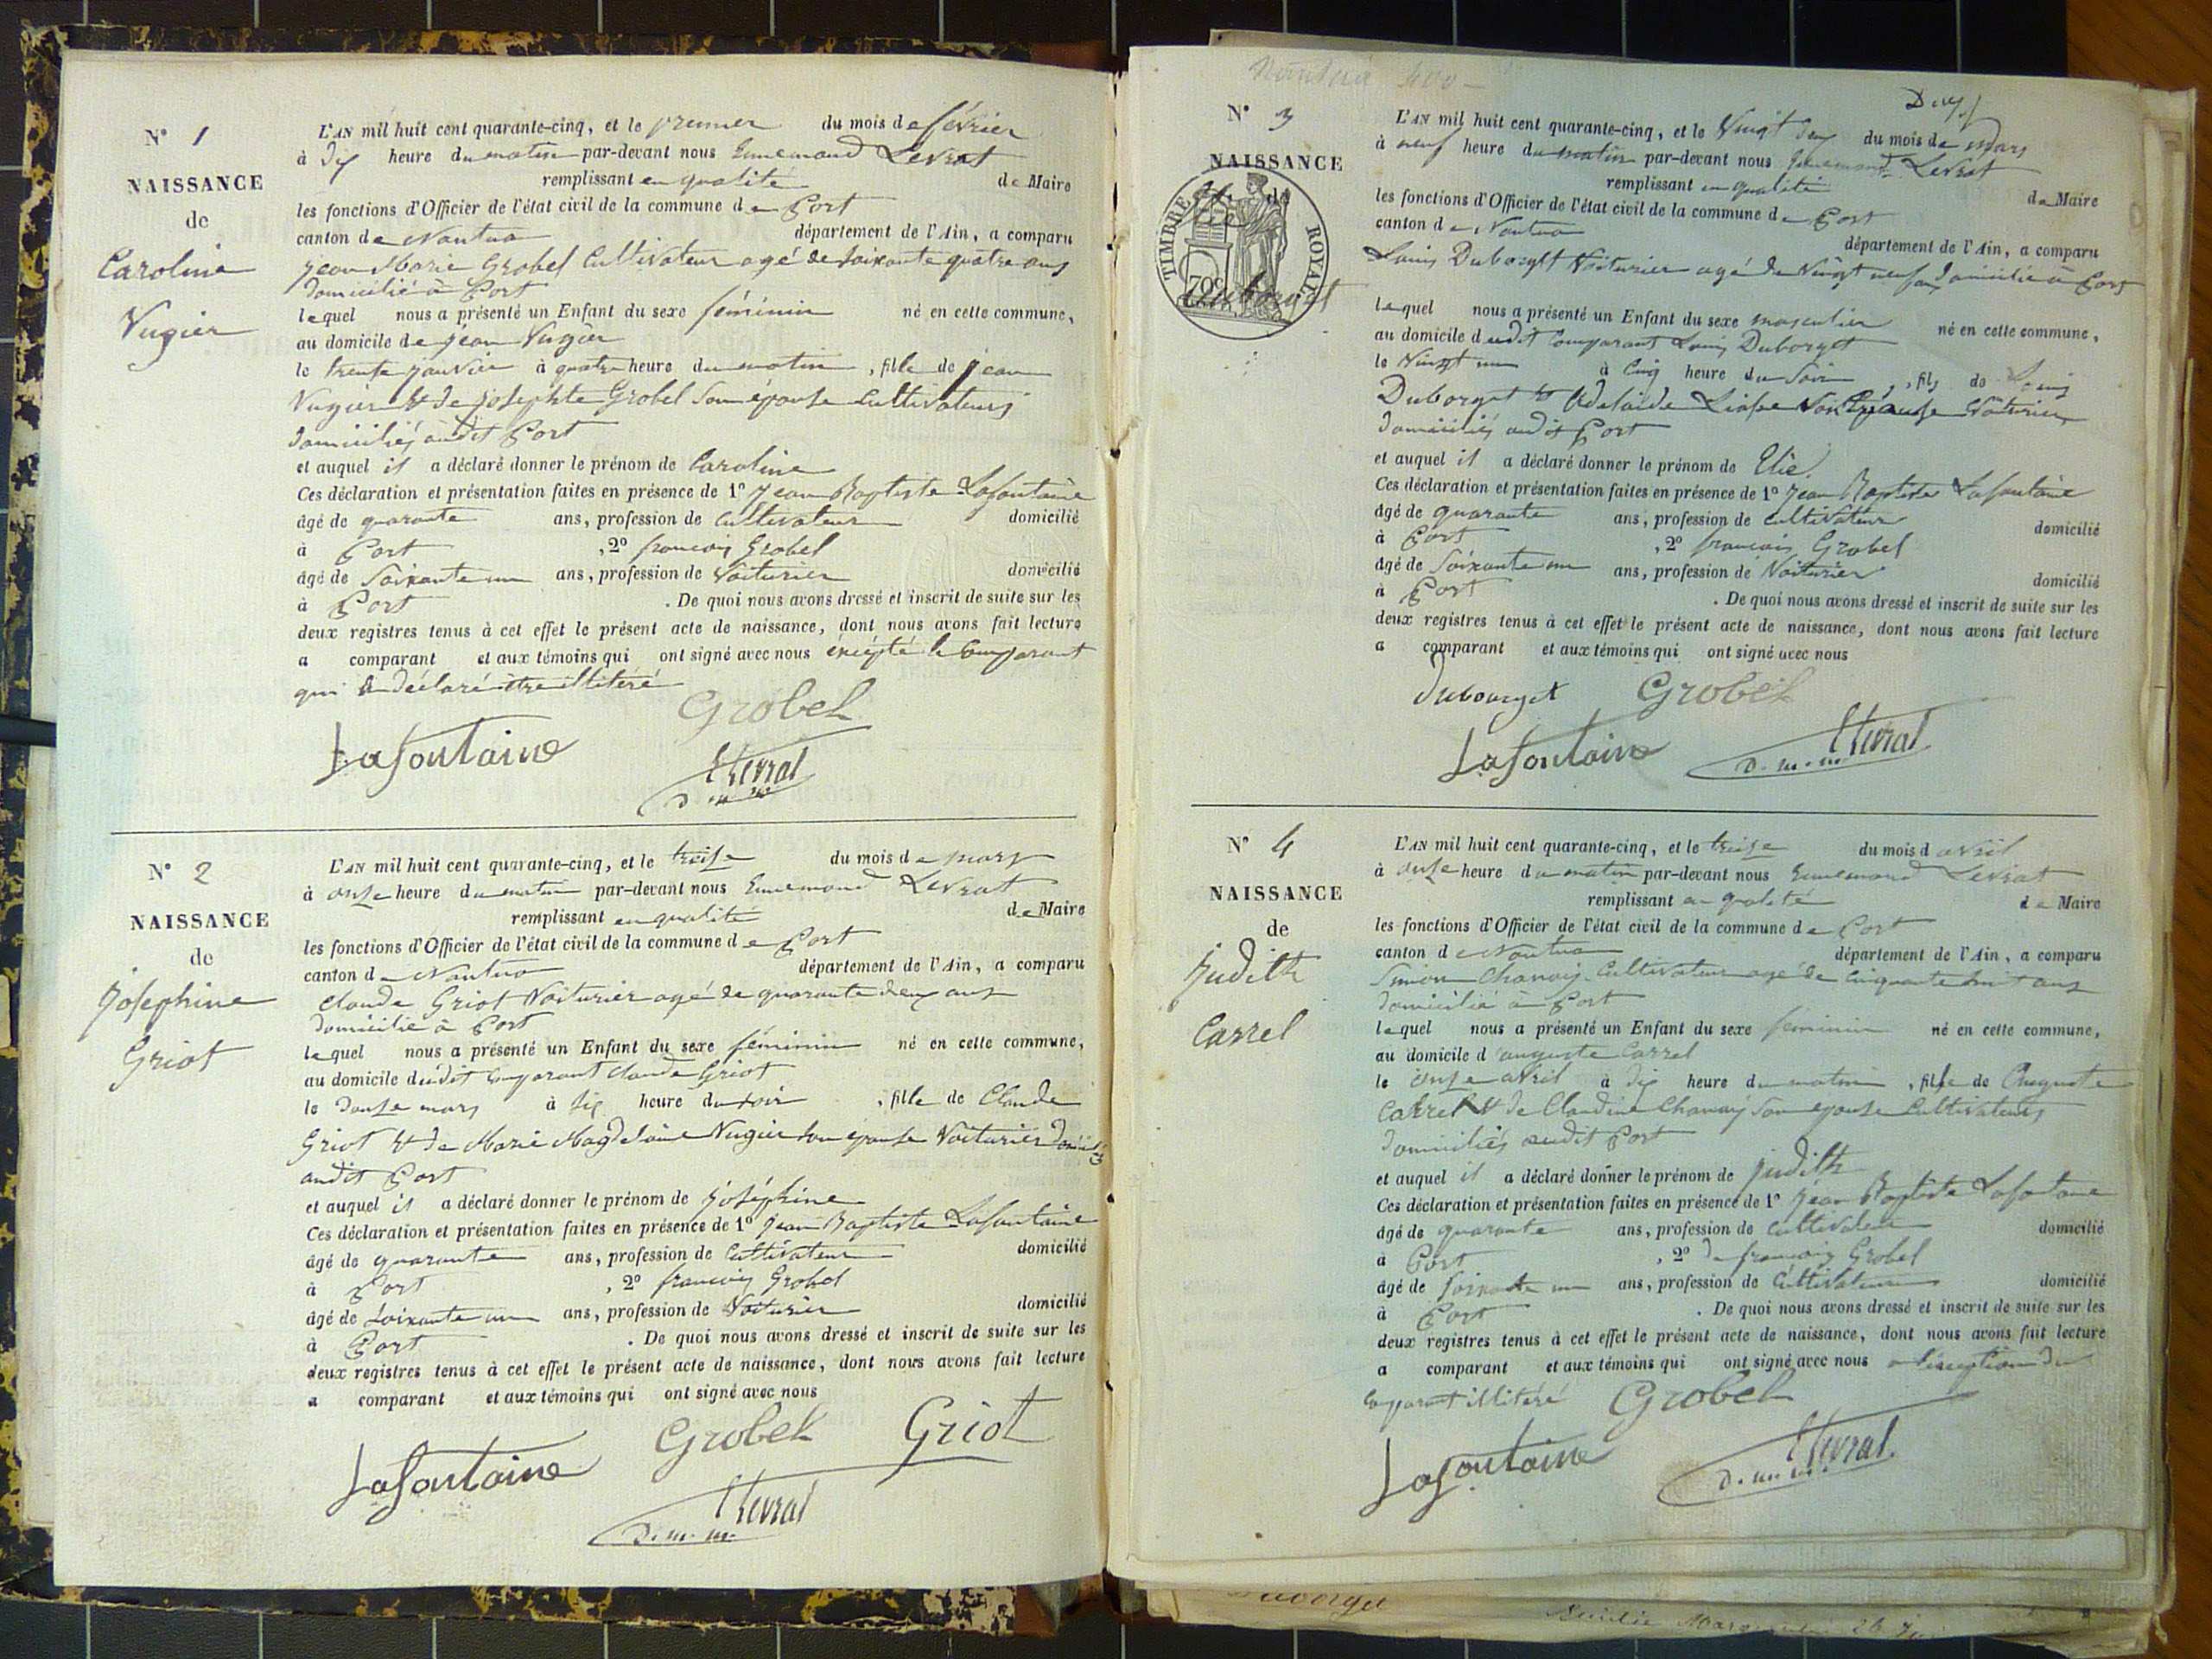 N° 1
NAISSANCE
de
Caroline
Vugier
L'AN mil huit cent quarante-cinq, et le premier du mois de février
à dix heure du matin par-devant nous Ennemond Levrat
remplissant en qualité de Maire
les fonctions d'Officier de l'état civil de la commune de Port
canton de Nantua département de l'Ain, a comparu
jean Marie Grobel Cultivateur agé de soixante quatre ans
domicilié à Port
lequel nous a présenté un Enfant du sexe féminin né en cette commune,
au domicile de jean Vugier
le trente janvier à quatre heure du matin, fille de jean
Vugier et de josephte Grobel son épouse Cultivateurs
domiciliés audit Port
et auquel il a déclaré donner le prénom de Caroline
Ces déclaration et présentation faites en présence de 1° jean Baptiste Lafontaine
âgé de quarante ans, profession de Cultivateur domicilié
à Port, 2° francois Grobel
âgé de soixante un ans, profession de Voiturier domicilié
à Port. De quoi nous avons dressé et inscrit de suite sur les
deux registres tenus à cet effet le présent acte de naissance, dont nous avons fait lecture
a comparant et aux témoins qui ont signé avec nous excepté le Comparant
qui a déclaré être illiteré
Grobel
Lafontaine
Elevrat
d. m.
N° 2
NAISSANCE
de
josephine
Griot
L'AN mil huit cent quarante-cinq, et le treise du mois de mars
à onse heure du matin par-devant nous Ennemond Levrat
remplissant en qualité de Maire
les fonctions d'Officier de l'état civil de la commune de Port
canton de Nantua département de l'Ain, a comparu
claude Griot Voiturier agé de quarante deux ans
domicilié à Port
lequel nous a présenté un Enfant du sexe féminin né en cette commune,
au domicile dudit Comparant claude Griot
le douse mars à six heure du soir, fille de Claude
Griot et de Marie Magdelaine Vugier son épouse Voiturier
audit Port
et auquel il a déclaré donner le prénom de joséphine
Ces déclaration et présentation faites en présence de 1° jean Baptiste Lafontaine
âgé de quarante ans, profession de Cultivateur domicilié
à Port, 2° francois Grobel
âgé de soixante un ans, profession de Voiturier domicilié
à Port. De quoi nous avons dressé et inscrit de suite sur les
deux registres tenus à cet effet le présent acte de naissance, dont nous avons fait lecture
a comparant et aux témoins qui ont signé avec nous
Grobel Griot
Lafontaine
Elevrat
d. m. m.
Nantua 400
N° 3
NAISSANCE
de
Elie
Duborget
TIMBRE ROYAL
70c
L'AN mil huit cent quarante-cinq, et le Vingt deux du mois de mars
à neuf heure du matin par-devant nous Ennemond Levrat
remplissant en qualité de Maire
les fonctions d'Officier de l'état civil de la commune de Port
canton de Nantua département de l'Ain, a comparu
Louis Duborget Voiturier agé de Vingt neuf ans domicilié à Port
lequel nous a présenté un Enfant du sexe masculin né en cette commune,
au domicile dudit Comparant Louis Duborget
le Vingt un à Cinq heure du soir, fils de Louis
Duborget et Adelaide son Epouse Voiturier
domiciliés audit Port
et auquel il a déclaré donner le prénom de Elie
Ces déclaration et présentation faites en présence de 1° jean Baptiste Lafontaine
âgé de quarante ans, profession de Cultivateur domicilié
à Port, 2° francois Grobel
âgé de soixante un ans, profession de Voiturier domicilié
à Port. De quoi nous avons dressé et inscrit de suite sur les
deux registres tenus à cet effet le présent acte de naissance, dont nous avons fait lecture
a comparant et aux témoins qui ont signé avec nous
dubourget Grobel
Lafontaine
Elevrat
d. m. m.
N° 4
NAISSANCE
de
judith
Carrel
L'AN mil huit cent quarante-cinq, et le treise du mois d avril
à onse heure du matin par-devant nous Ennemond Levrat
remplissant en qualité de Maire
les fonctions d'Officier de l'état civil de la commune de Port
canton de Nantua département de l'Ain, a comparu
Simon Chanay Cultivateur agé de Cinquante huit ans
domicilié à Port
lequel nous a présenté un Enfant du sexe féminin né en cette commune,
au domicile d auguste Carrel
le onse avril à dix heure du matin, fille de Auguste
Carrel et de Claudine Chanay son epouse Cultivateurs
domiciliés audit Port
et auquel il a déclaré donner le prénom de judith
Ces déclaration et présentation faites en présence de 1° jean Baptiste Lafontaine
âgé de quarante ans, profession de Cultivateur domicilié
à Port, 2° francois Grobel
âgé de soixante un ans, profession de Cultivateur domicilié
à Port. De quoi nous avons dressé et inscrit de suite sur les
deux registres tenus à cet effet le présent acte de naissance, dont nous avons fait lecture
a comparant et aux témoins qui ont signé avec nous a l'exception du
Comparant illiteré
Grobel
Lafontaine
Elevrat
d. m. m.
26